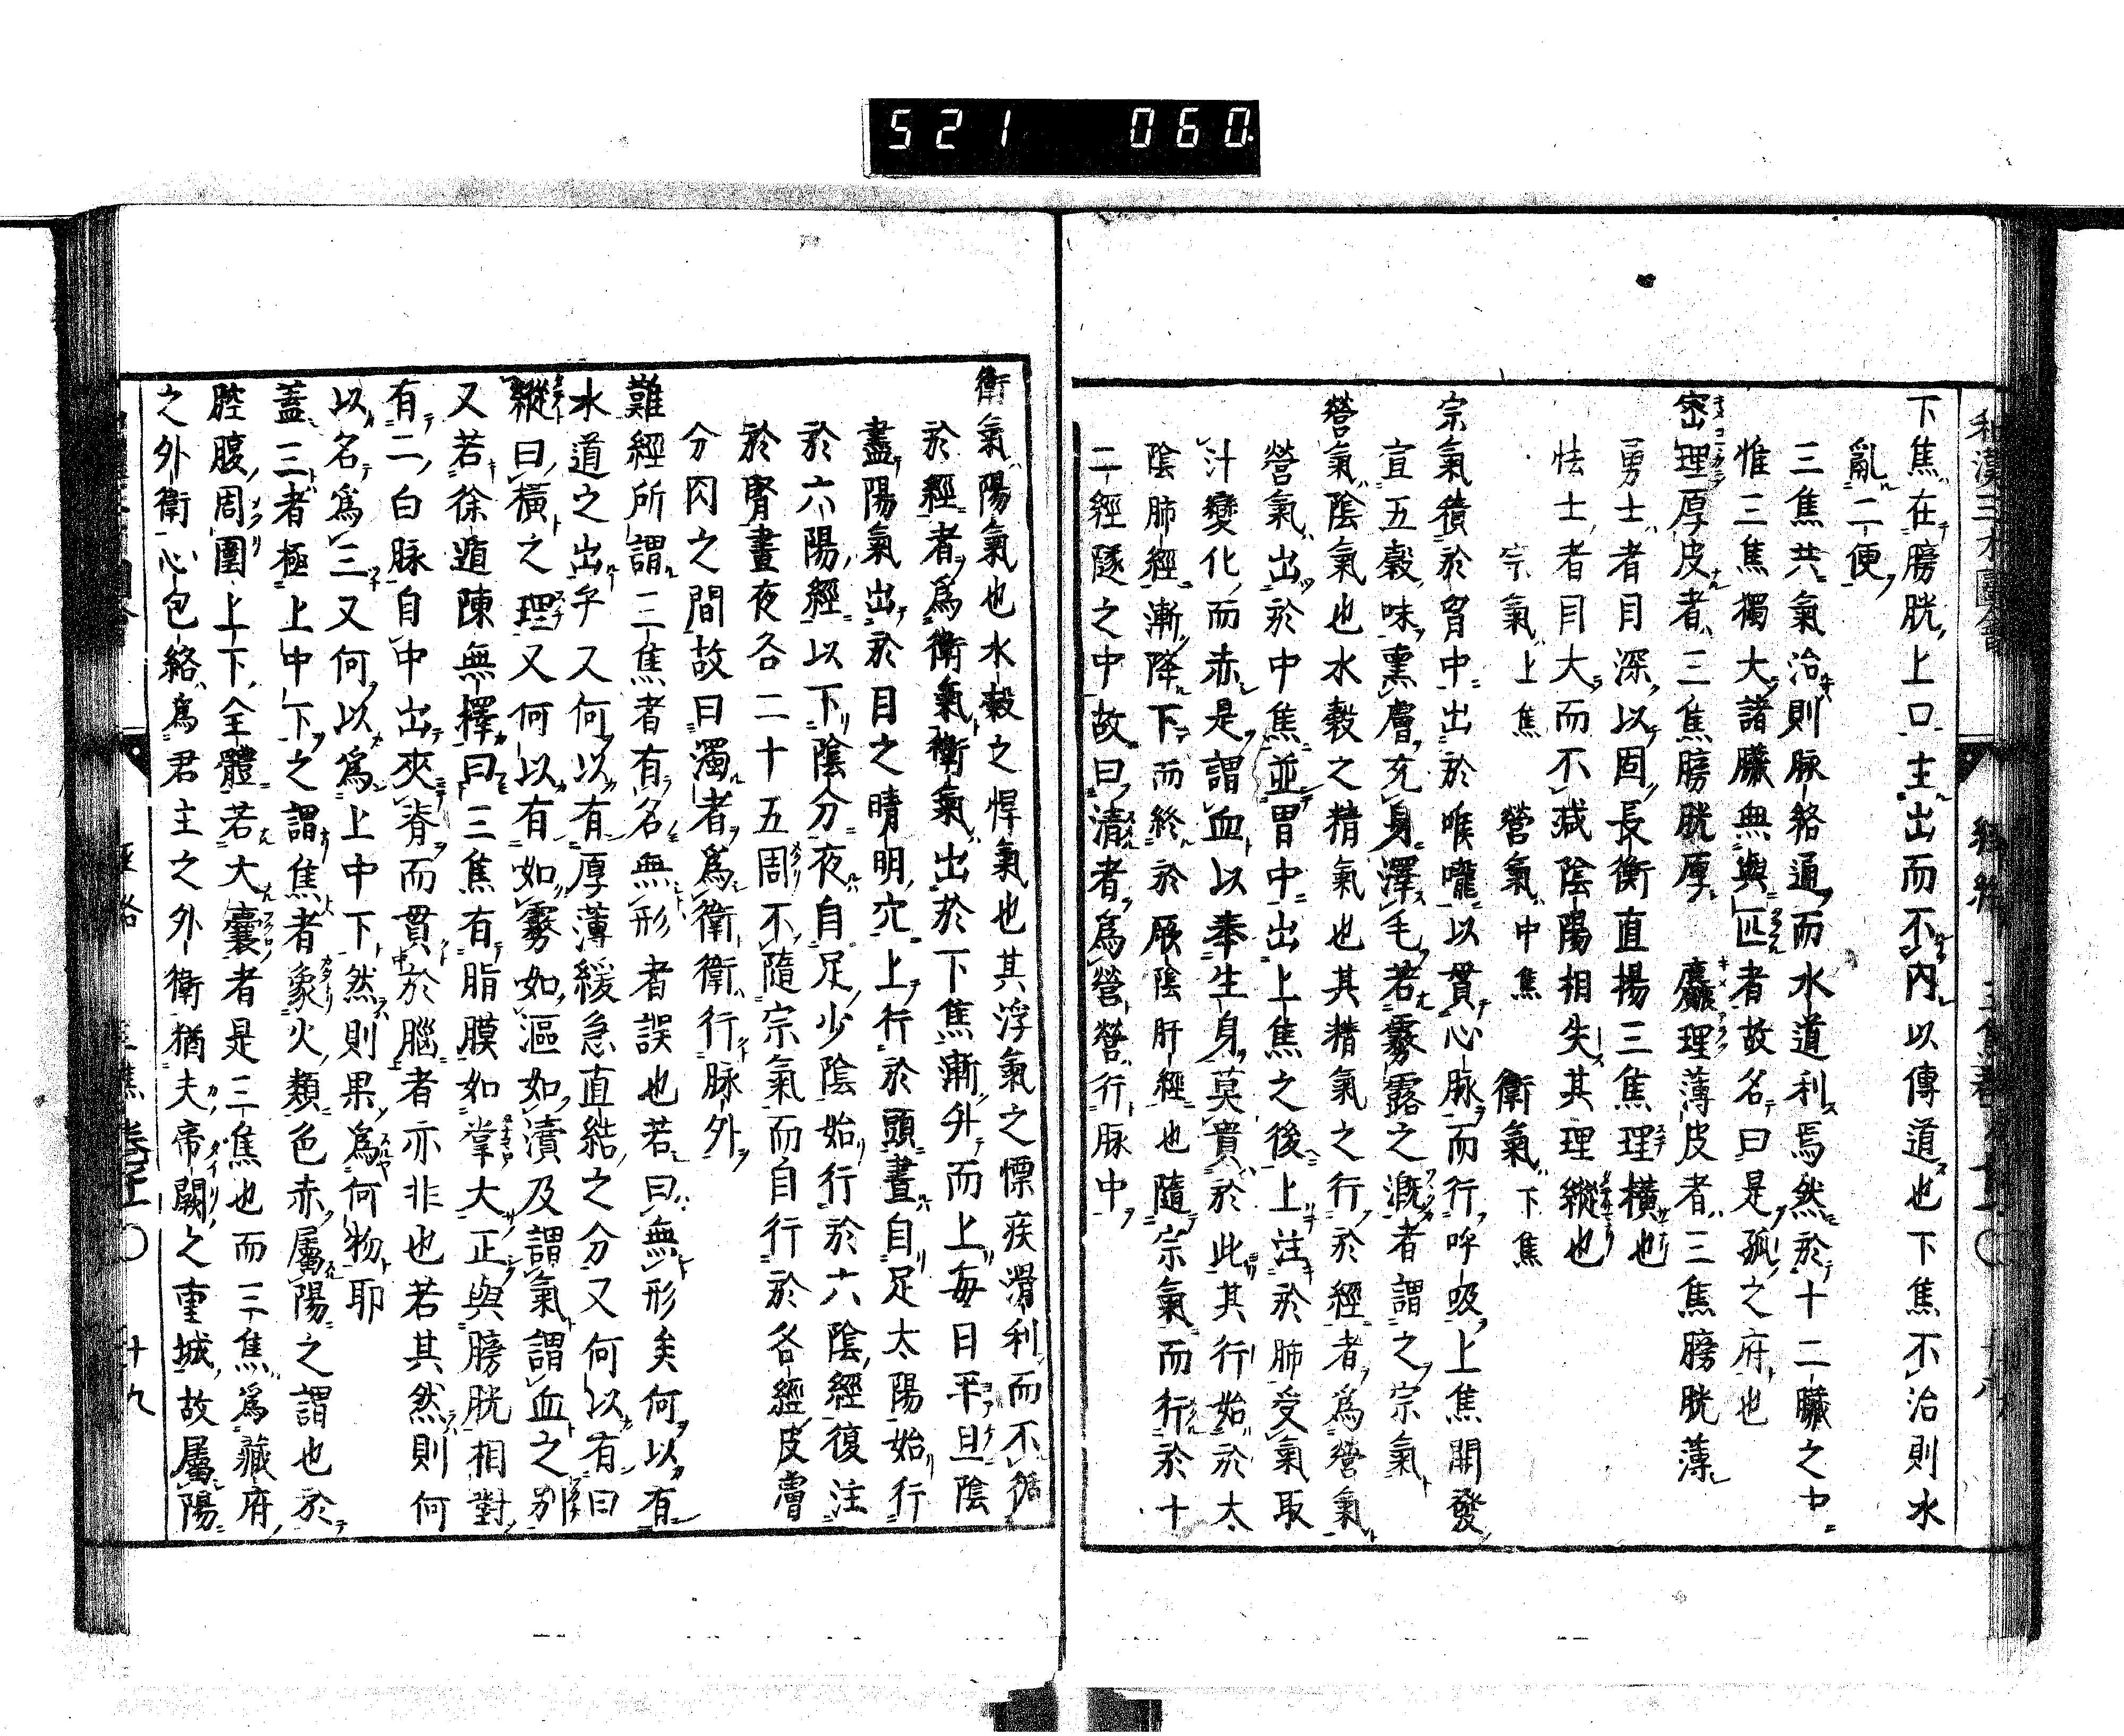 521 060
和漢三才圖會 經絡
下焦在膀胱上口主出而不内以傳道也下焦不治則水
亂二便
三焦共氣治則脉絡通而水道利焉然於十二臟之中
惟三焦獨大諸臟無與匹者故名曰是孤之府也
密理厚皮者三焦膀胱厚 麤理薄皮者三焦膀胱薄
勇士者目深以固長衡直揚三焦理橫也
怯士者目大而不減陰陽相失其理縱也
宗氣上焦 營氣中焦 衛氣下焦
宗氣積於胷中出於喉嚨以貫心脉而行呼吸上焦開發
宣五穀味熏膚充身澤毛若霧露之漑者謂之宗氣
營氣陰氣也水穀之精氣也其精氣之行於經者爲營氣
營氣出於中焦並胃中出上焦之後上注於肺受氣取
汁變化而赤是謂血以奉生身莫貴於此其行始於太
陰肺經漸降下而終於厥陰肝經也隨宗氣而行於十
二經隧之中故曰清者爲營營行脉中
衛氣陽氣也水穀之悍氣也其浮氣之慓疾滑利而不循
於經者爲衛氣衛氣出於下焦漸升而上每日平旦陰
盡陽氣出於目之睛明穴上行於頭晝自足太陽始行
於六陽經以下陰分夜自足少陰始行於六陰經復注
於腎晝夜各二十五周不隨宗氣而自行於各經皮膚
分肉之間故曰濁者爲衛衛行脉外
難經所謂三焦者有名無形者誤也若曰無形矣何以有
水道之出乎又何以有厚薄緩急直結之分又何以有曰
縱曰橫之理又何以有如霧如漚如瀆及謂氣謂血之別
又若徐遁陳無擇曰三焦有脂膜如掌大正與膀胱相對
有二白脉自中出夾脊而貫於腦者亦非也若其然則何
以名爲三又何以爲上中下然則果爲何物耶
蓋三者極上中下之謂焦者象火類色赤屬陽之謂也於
腔腹周圍上下全體若大囊者是三焦也而三焦爲藏府
之外衛心包絡爲君主之外衛猶夫帝闕之重城故屬陽
經絡 三焦 卷十一〇 十九